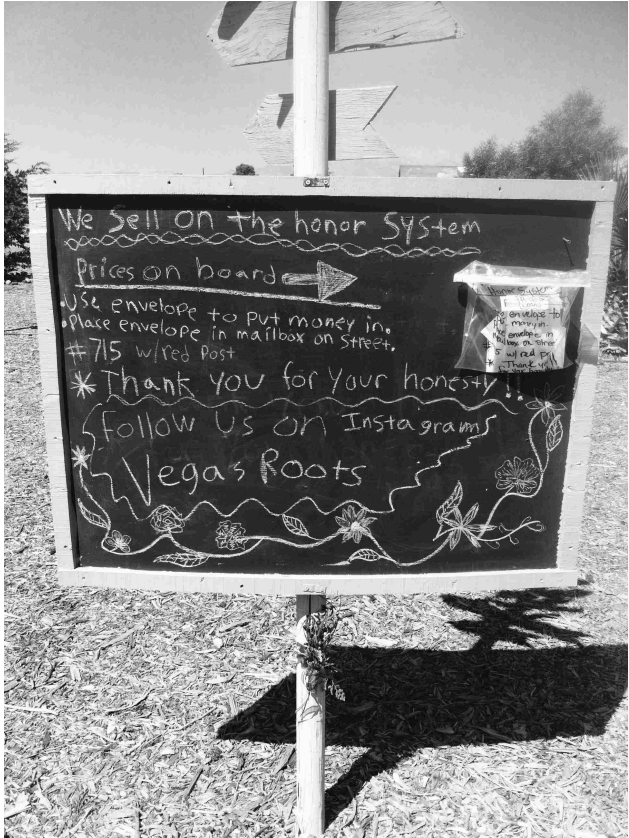 We Sell on the honor System
Prices on board
• Use envelope to put money in.
• Place envelope in mailbox on Street.
#715 w/red Post
* Thank you for your honesty!!
Follow Us on Instagram
Vegas Roots
Honor System
envelope to
money in.
envelope in
mailbox on Street
5 w/ red
* Thank you